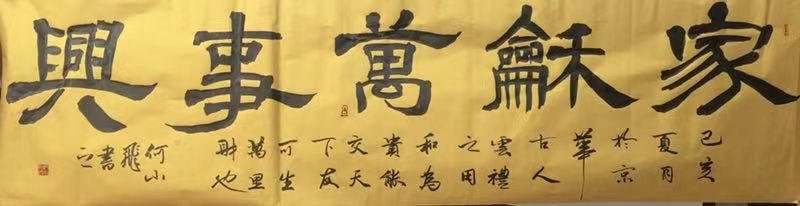 家龢萬事興
己亥
夏月
於京
華
古人
雲禮
之用
和為
貴能
交天
下友
可生
萬里
財也
何小
飛
書
之